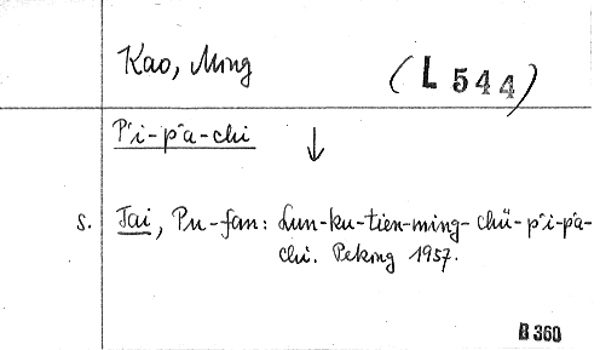 Kao, Ming (L 544)
P'i-p'a-chi ↓
s. Tai, Pu-fan: Lun-ku-tien-ming-chü-p'i-p'a-
chi. Peking 1957.
B 360